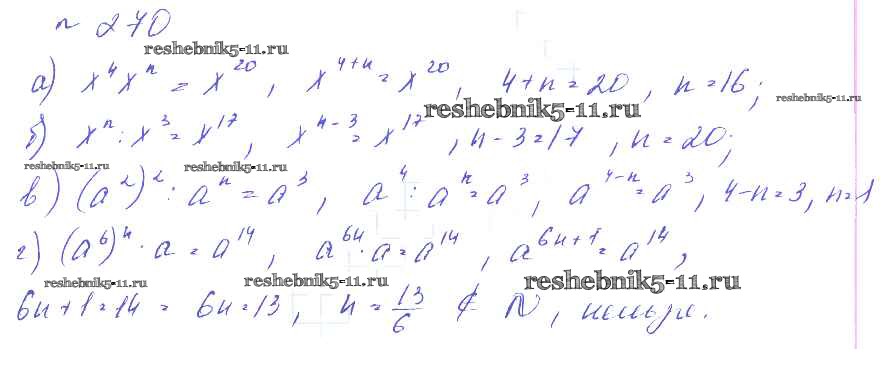 № 270
reshebnik5-11.ru
а) x⁴xⁿ = x²⁰, x⁴⁺ⁿ = x²⁰, 4+n=20, n=16;
reshebnik5-11.ru reshebnik5-11.ru
б) xⁿ : x³ = x¹⁷, xⁿ⁻³ = x¹⁷, n-3=17, n=20;
reshebnik5-11.ru reshebnik5-11.ru
в) (a²)² : aⁿ = a³, a⁴ : aⁿ = a³, a⁴⁻ⁿ = a³, 4-n=3, n=1
г) (a⁶)ⁿ · a = a¹⁴, a⁶ⁿ · a = a¹⁴, a⁶ⁿ⁺¹ = a¹⁴,
reshebnik5-11.ru reshebnik5-11.ru reshebnik5-11.ru
6n+1=14 = 6n=13, n = 13/6 ∉ N, нельзя.